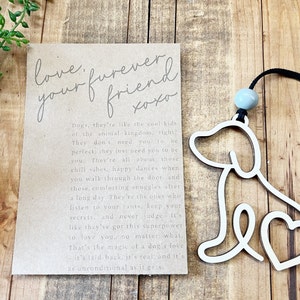 love,
your furever
friend
xoxo
Dogs, they're like the cool kids
of the animal kingdom, right?
They don't need you to be
perfect, they just need you to be
you. They're all about those
chill vibes, happy dances when
you walk through the door, and
those comforting snuggles after
a long day. They're the ones who
listen to your rants, keep your
secrets, and never judge. It's
like they've got this superpower
to love you, no matter what.
That's the magic of a dog's love
it's laid back, it's real, and it's
as unconditional as it gets.